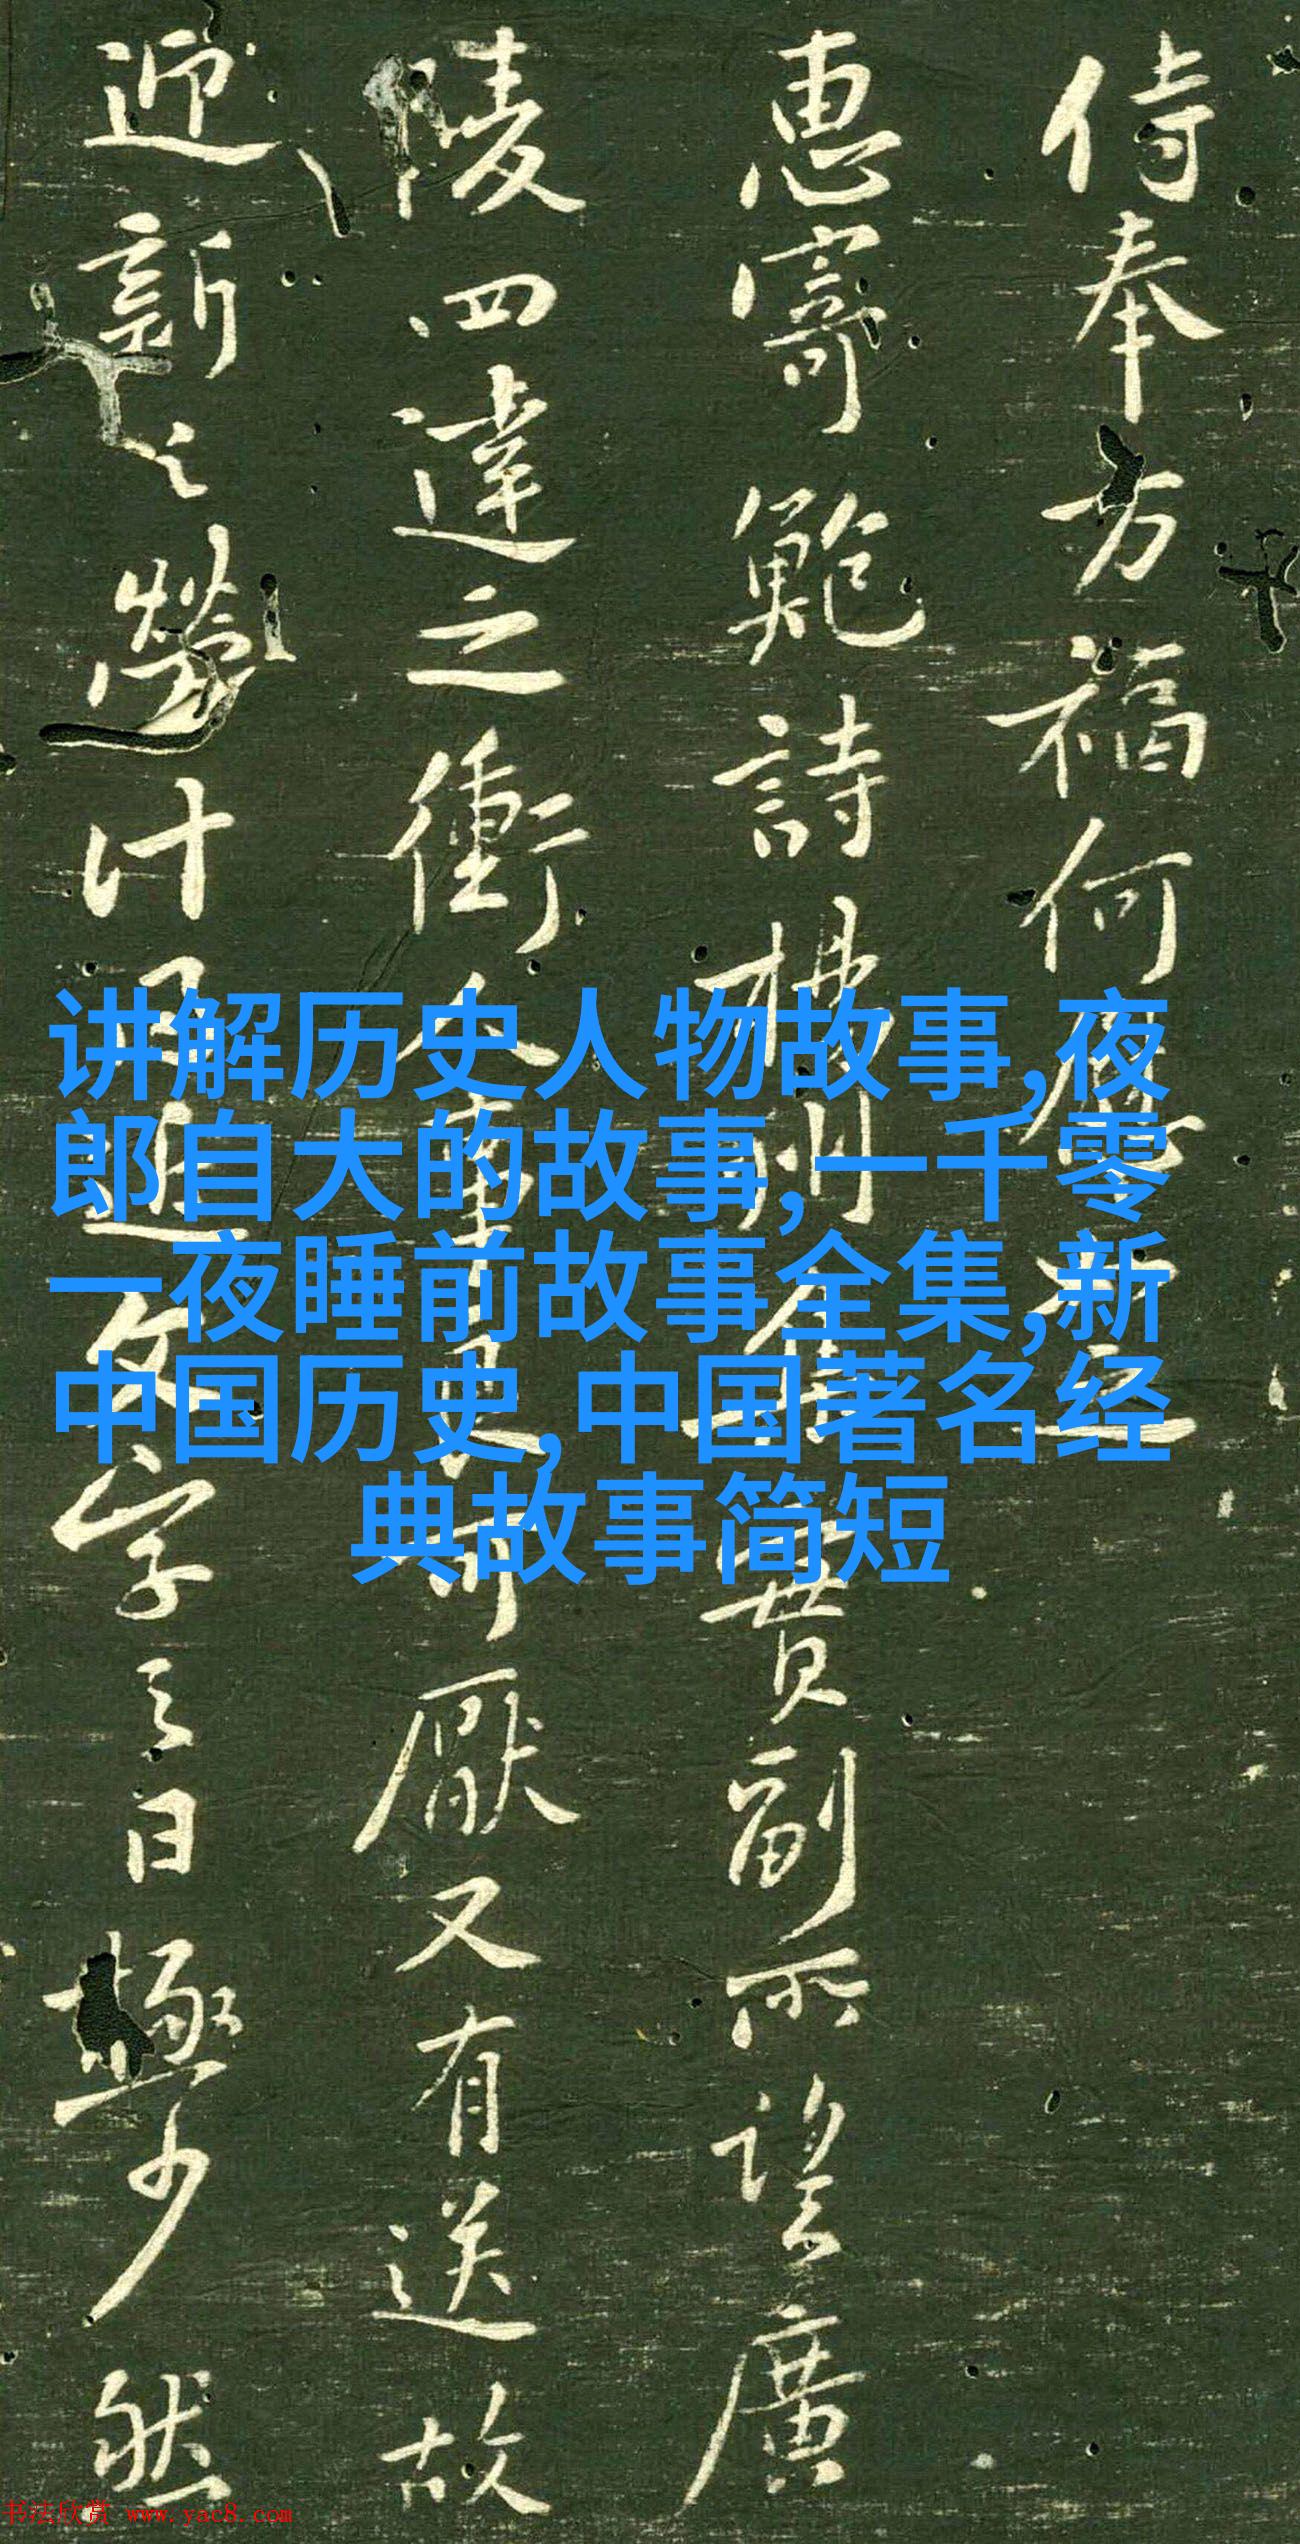 侍奉万福何
惠寄鲍詩
費副所望廣
陵四達之衝人事
厭又有送故
迎新之勞計
文字之日極少然
讲解历史人物故事,夜
郎自大的故事,一千零
一夜睡前故事全集,新
中国历史,中国著名经
典故事简短
书法欣赏 www.yac8.com